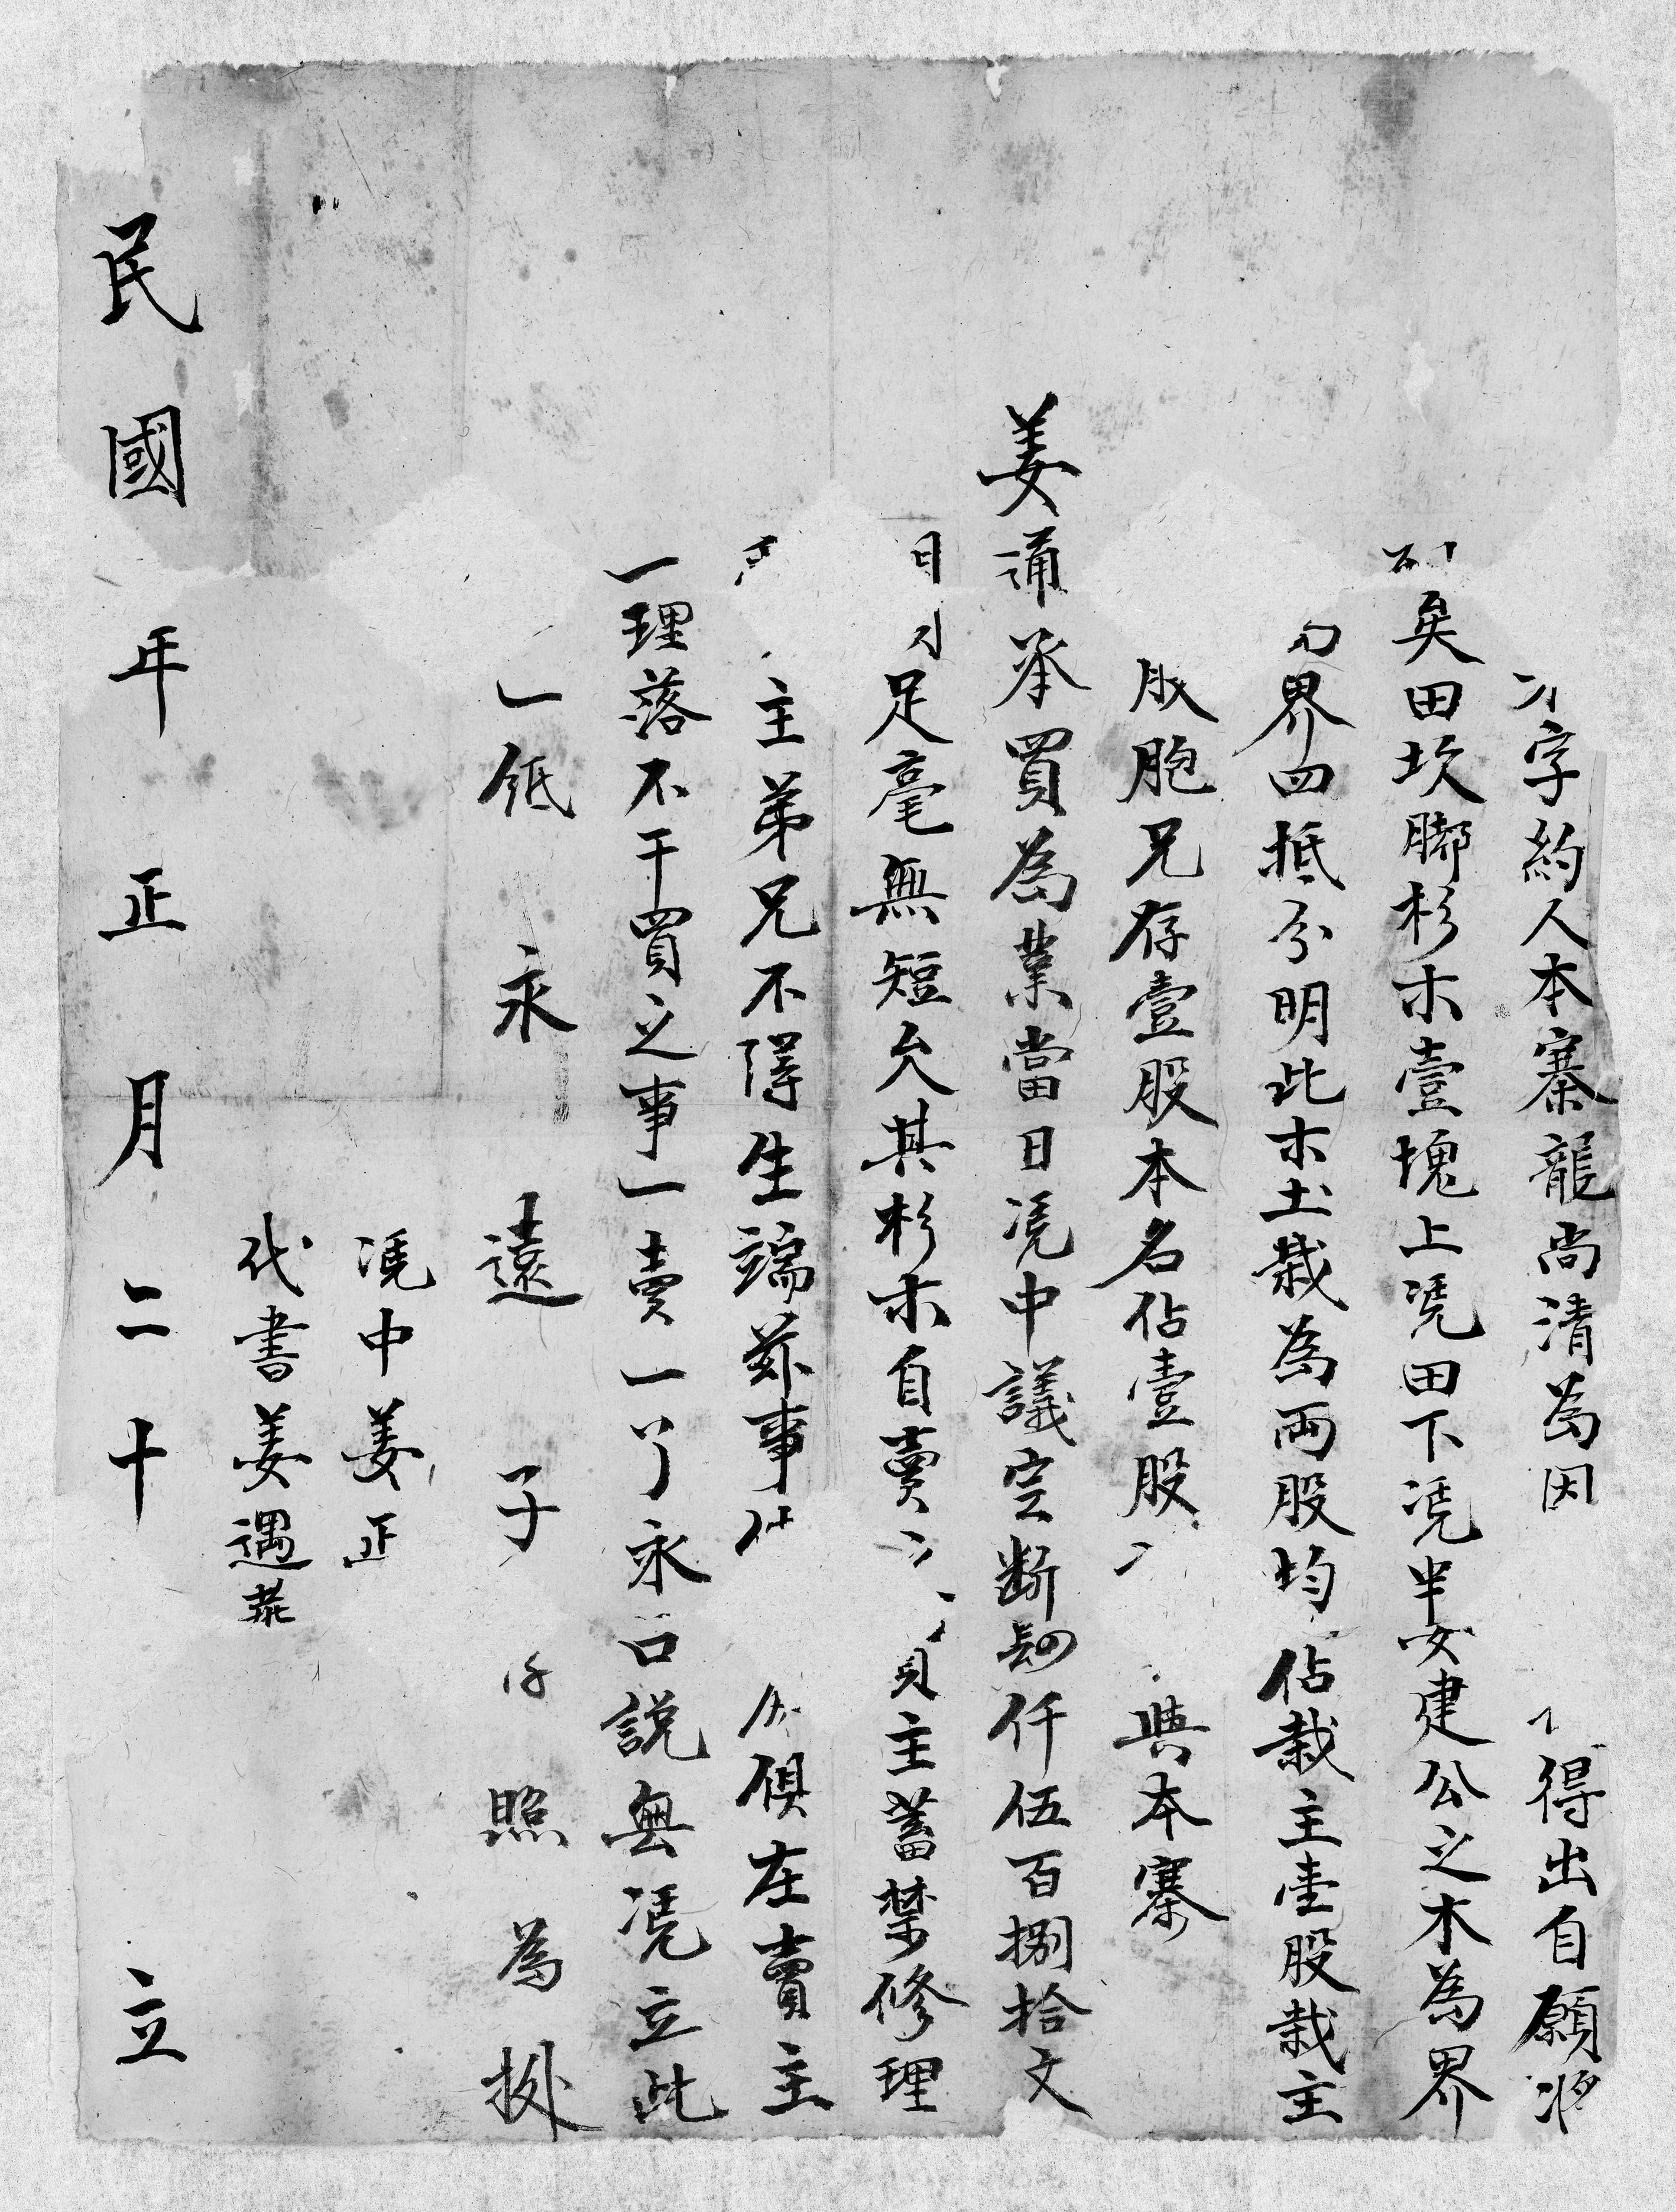 字約人本寨龍尚清為因得出自願將
矣田坎脚杉木壹塊上凴田下凴半安建公之木為界
界四抵分明此木土栽為両股均佔栽主壹股栽主
胞兄存壹股本名佔壹股典本寨
姜涌承買為業當日凴中議定断價仟伍百捌拾文
日足毫無短欠其杉木自賣買主蓄禁修理
主弟兄不得生端茲事俱在賣主
一理落不干買之事一賣一了永口説無凴立此
一紙永遠子照為據
凴中姜正
代書姜遇
民國年正月二十立